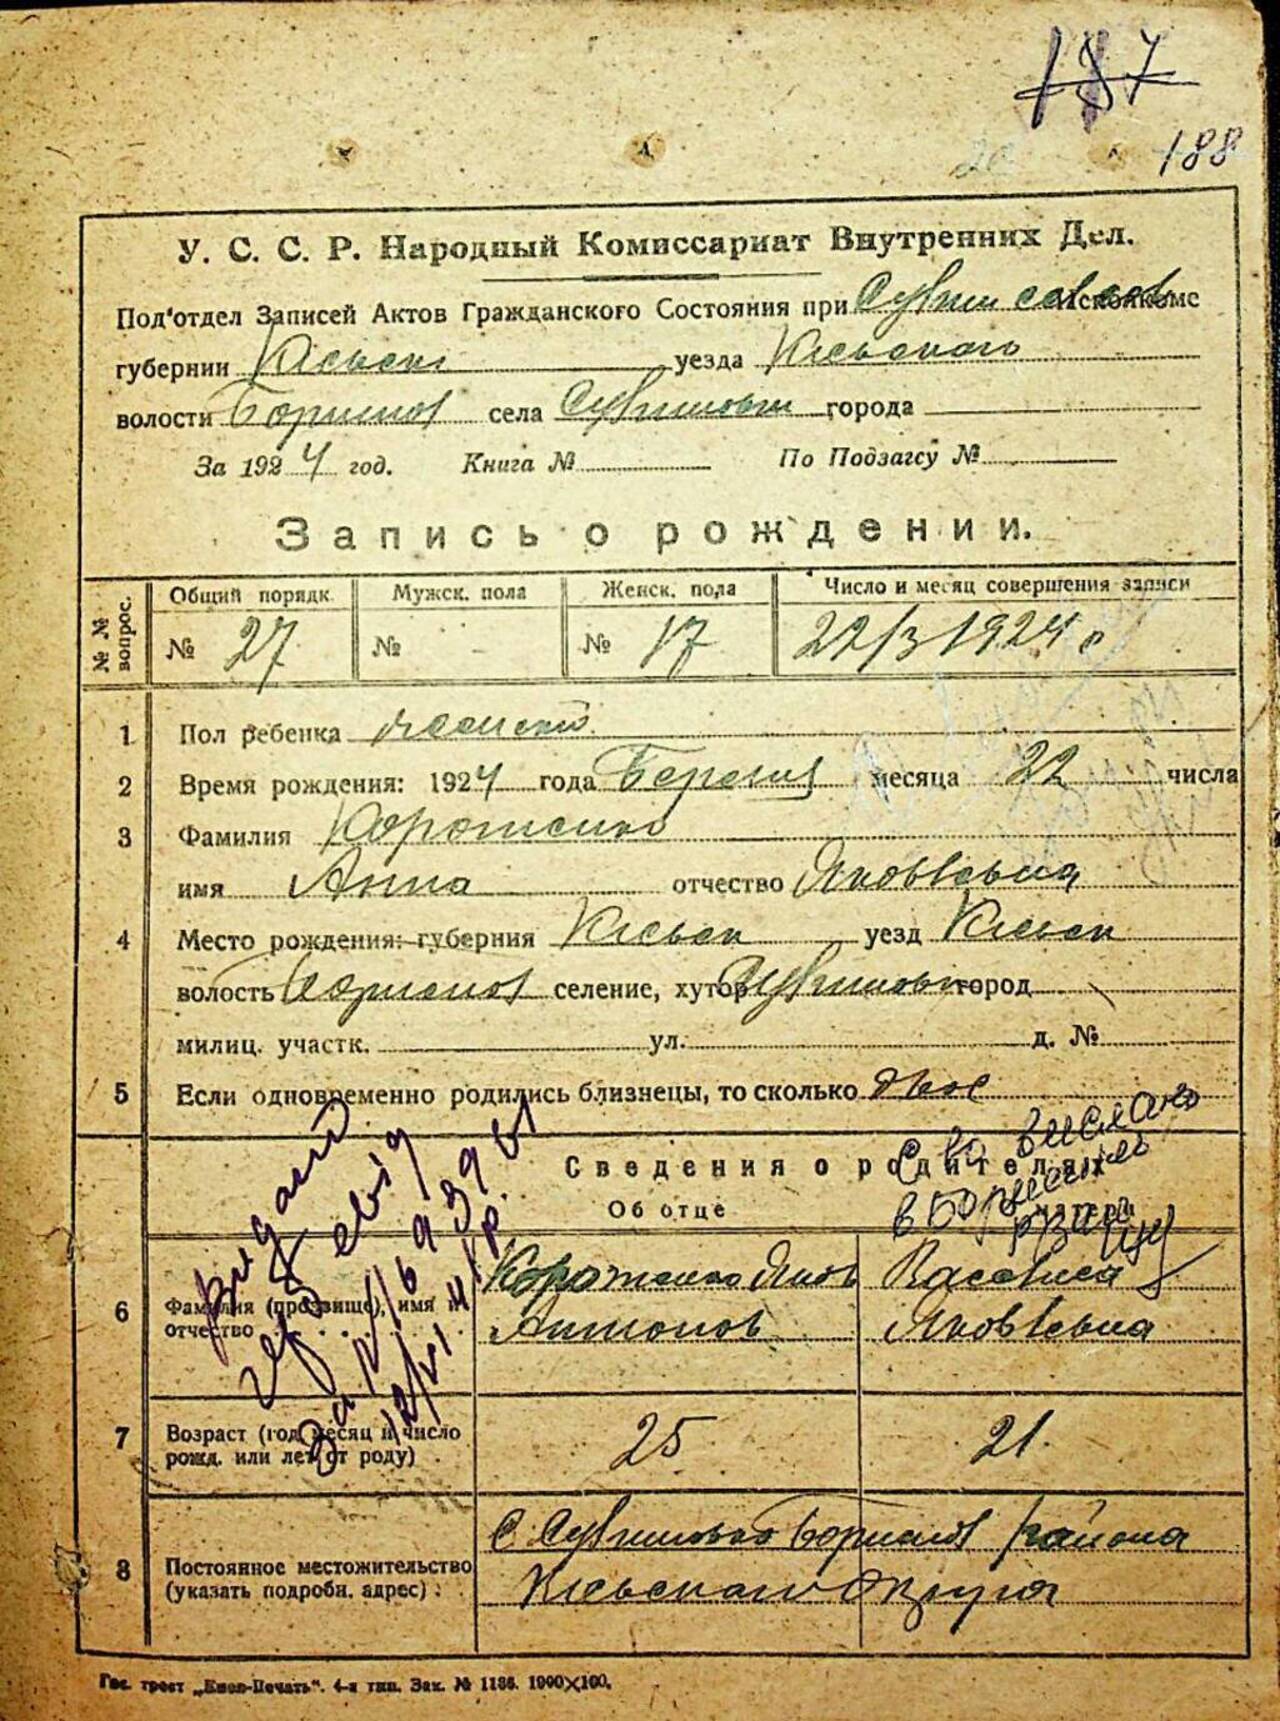 187
188
У. С. С. Р. Народный Комиссариат Внутренних Дел.
Под'отдел Записей Актов Гражданского Состояния при исполкоме
губернии Киевск уезда Киевского
волости села города
За 1924 год. Книга № По Подзагсу №
Запись о рождении.
№ № вопрос. Общий порядк. № 27 Мужск. пола № Женск. пола № 17 Число и месяц совершения записи 22/3 1924 г
1 Пол ребенка женский
2 Время рождения: 1924 года Березня месяца 22 числа
3 Фамилия Коротенко
имя Анна отчество Яковлевна
4 Место рождения: губерния Киевск уезд Киевск
волость селение, хутор город
милиц. участк. ул. д. №
5 Если одновременно родились близнецы, то сколько двое
Сведения о родителях
Об отце матери
6 Фамилия (прозвище), имя и отчество Коротенко Яков Антонов Василиса Яковлевна
7 Возраст (год, месяц и число рожд. или лет от роду) 25 21
8 Постоянное местожительство (указать подробн. адрес) района
Киевского округа
Гос. трест „Киев-Печать". 4-я тип. Зак. № 1186. 1000×100.